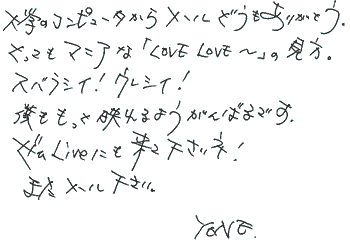 大学のコンピュータからメールどうもありがとう。
とってもマニアな「LOVE LOVE～」の見方。
スバラシイ！ウレシイ！
僕ももっと映れるようがんばるぞす。
ぜひLiveにも来て下さいネ！
またメール下さい。
YOSHIE.